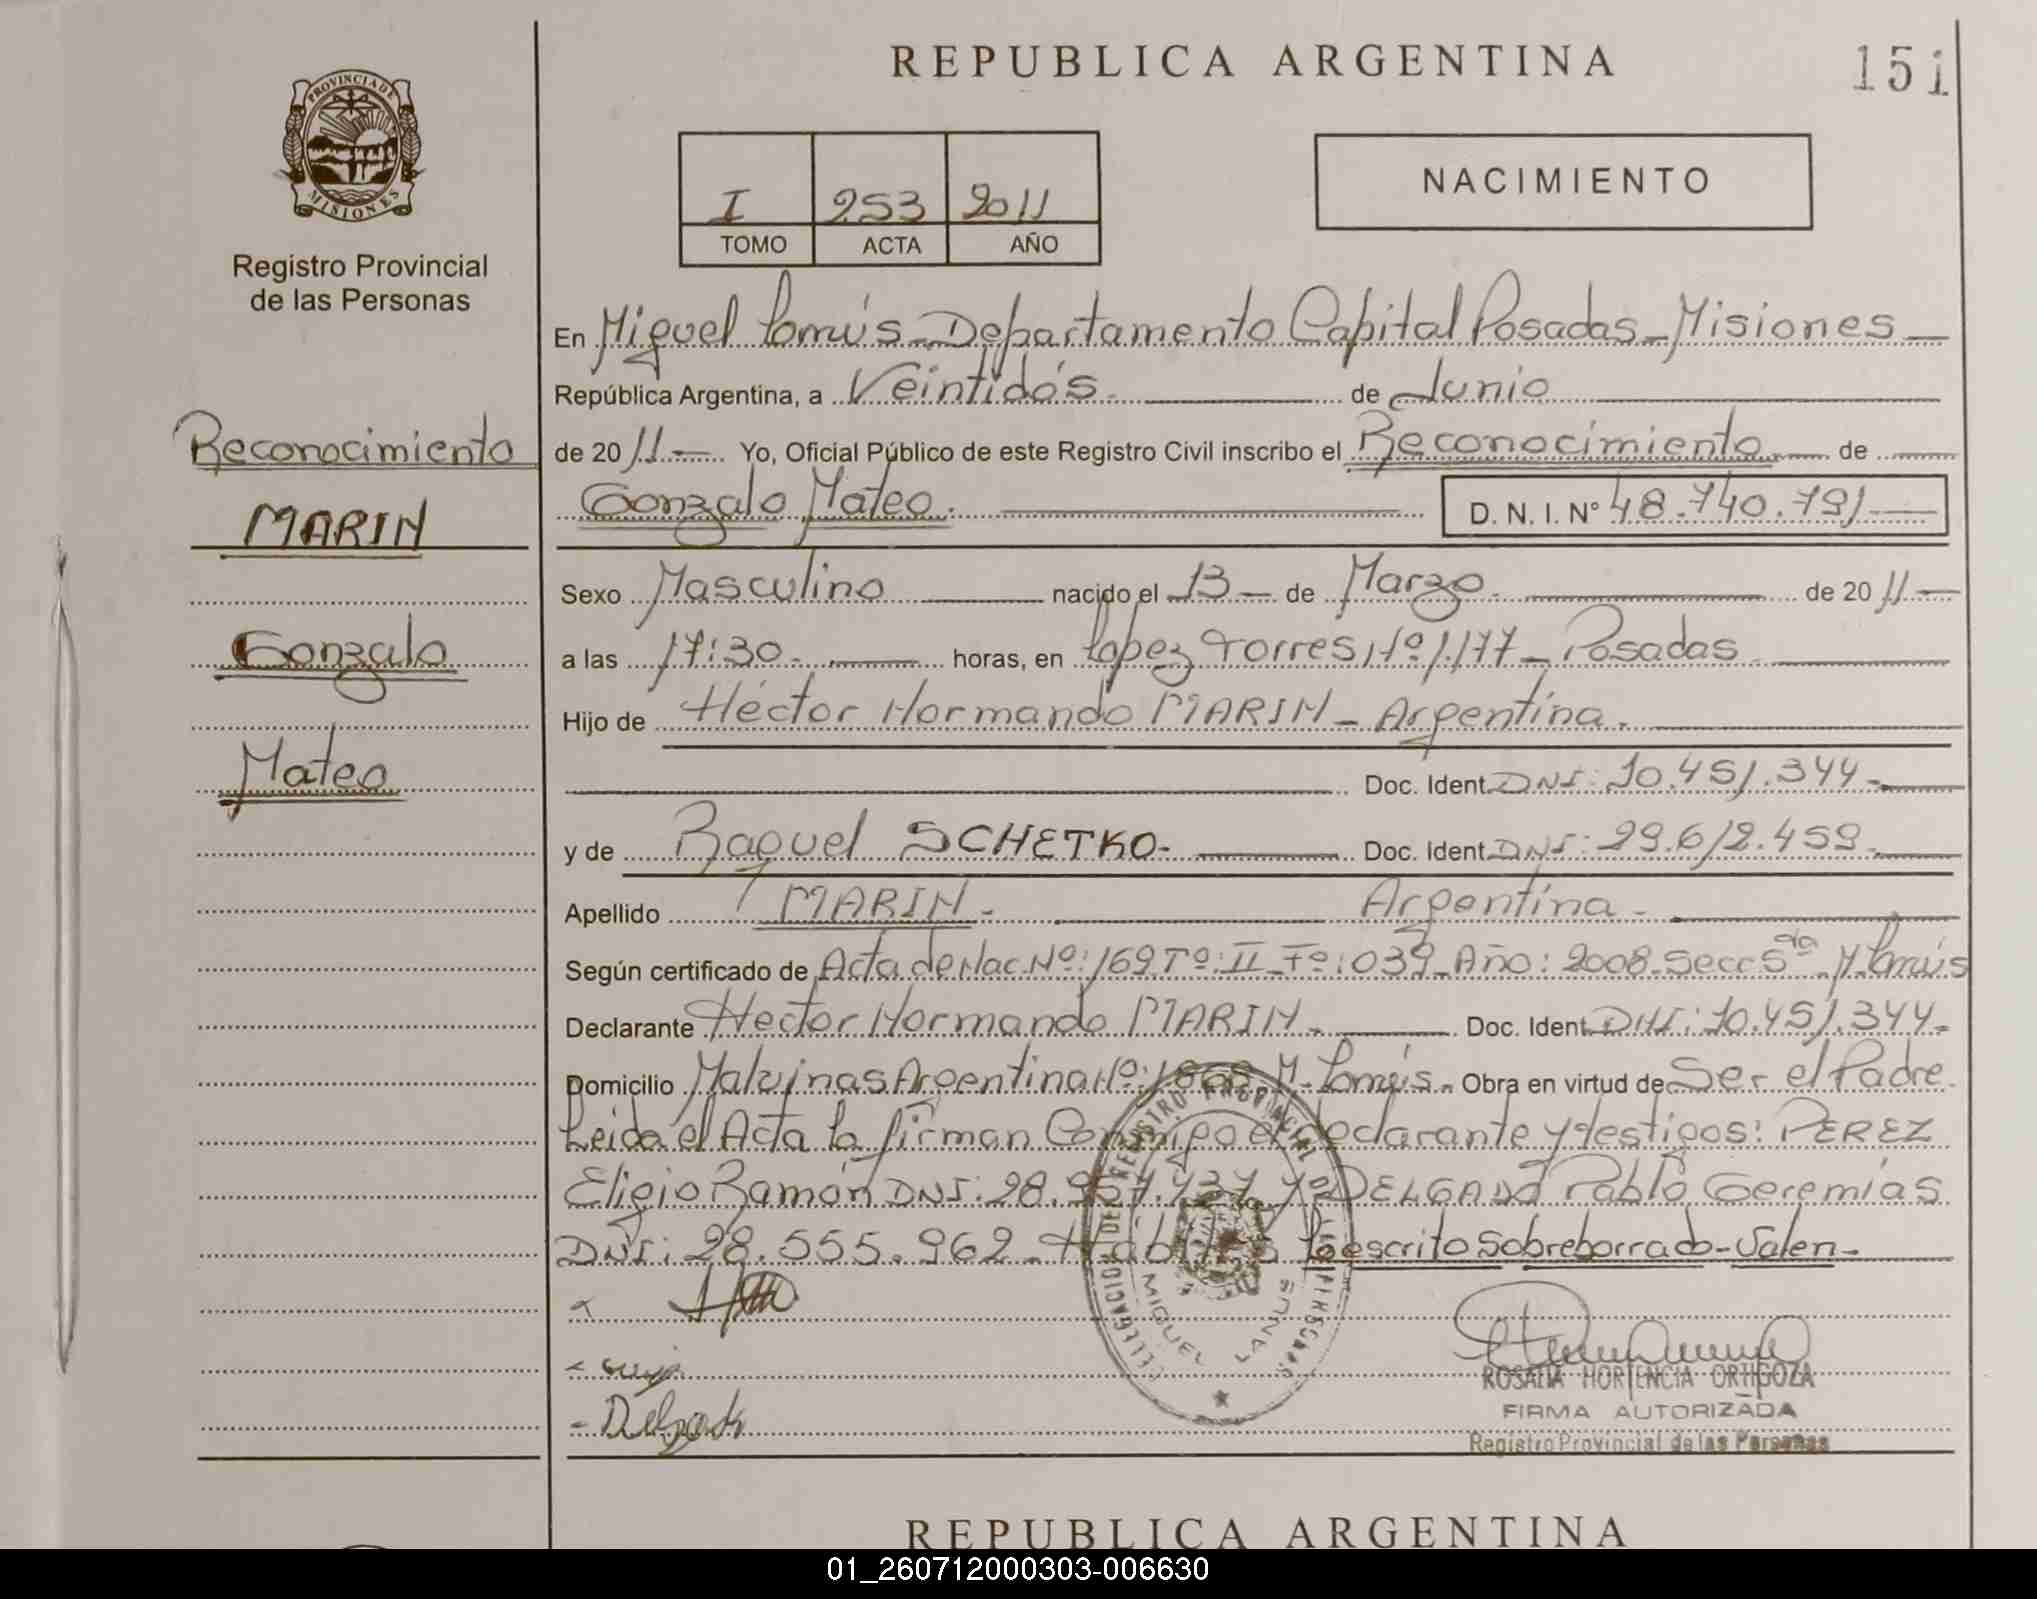 REPUBLICA ARGENTINA
151
PROVINCIA DE
MISIONES
Registro Provincial
de las Personas
I 253 2011
TOMO ACTA AÑO
NACIMIENTO
En Miguel Lanús - Departamento Capital Posadas - Misiones
República Argentina, a Veintidós de Junio
de 2011 Yo, Oficial Público de este Registro Civil inscribo el Reconocimiento de
Gonzalo Mateo. D. N. I. Nº 48.740.791
Reconocimiento
MARIN
Gonzalo
Mateo
Sexo Masculino nacido el 13 de Marzo de 2011
a las 17:30 horas, en López Torres Nº 1.177 - Posadas
Hijo de Héctor Normando MARIN - Argentina.
Doc. Ident. DNI: 10.451.344
y de Raquel SCHETKO - Doc. Ident. DNI: 29.612.459
Apellido MARIN - Argentina -
Según certificado de Acta de Nac. Nº: 169 Tº: II Fº: 039 Año: 2008 - Secc 5ta M. Lanús
Declarante Hector Normando MARIN - Doc. Ident. DNI: 10.451.344
Domicilio Malvinas Argentina Nº: M. Lanús - Obra en virtud de Ser el Padre
Leida el Acta la firman Conmigo el declarante y testigos: PEREZ
Eligio Ramón DNI: 28. y DELGADO Pablo Geremías
DNI: 28.555.962 - Lo escrito sobreborrado - Valen -
Delgado
DELEGACION DEL REGISTRO PROVINCIAL DE LAS PERSONAS
MIGUEL LANUS
ROSALIA HORTENCIA ORTIGOZA
FIRMA AUTORIZADA
Registro Provincial de las Personas
REPUBLICA ARGENTINA
01_260712000303-006630